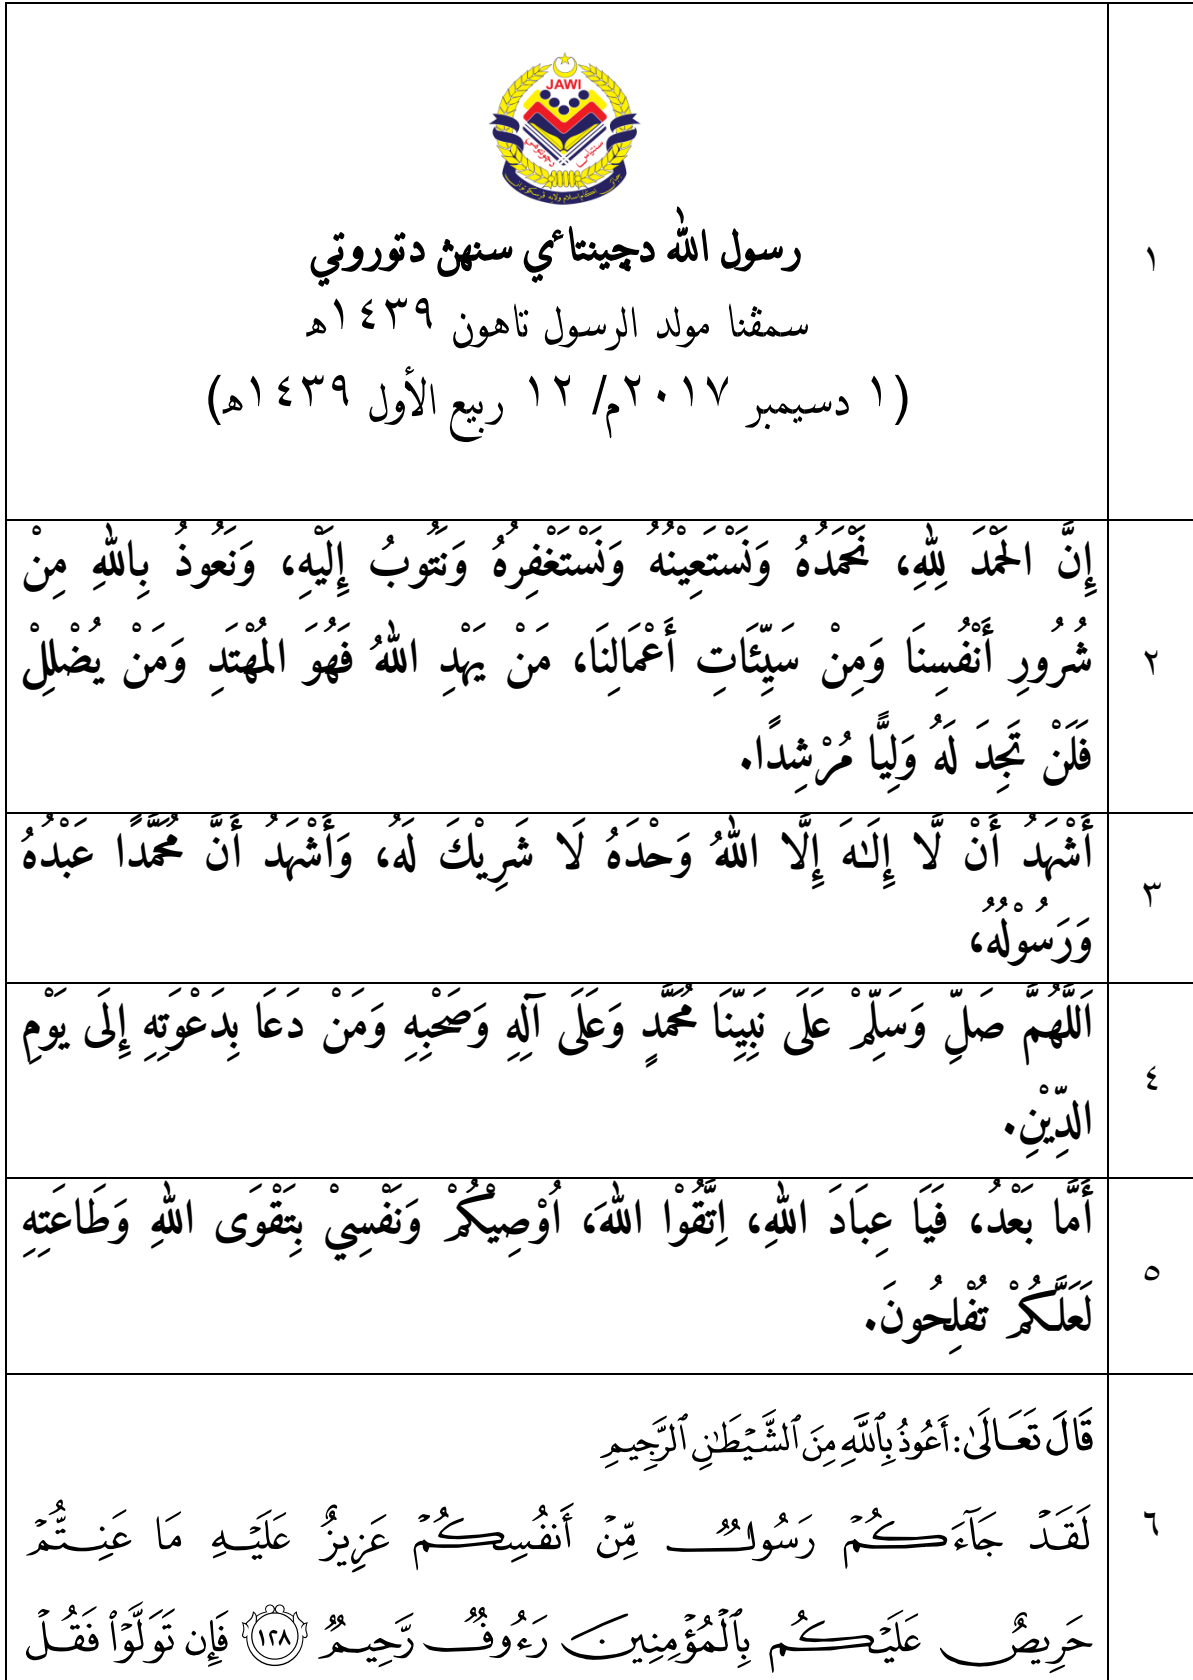 JAWI
رسول الله دچينتاءي سنهڽ دتوروتي
١
سمڤنا مولد الرسول تاهون ١٤٣٩هـ
(١ دسيمبر ٢٠١٧م/ ١٢ ربيع الأول ١٤٣٩هـ)
إِنَّ الحَمْدَ لِلهِ، نَحْمَدُهُ وَنَسْتَعِيْنُهُ وَنَسْتَغْفِرُهُ وَنَتُوبُ إِلَيْهِ، وَنَعُوذُ بِاللهِ مِنْ
شُرُورِ أَنْفُسِنَا وَمِنْ سَيِّئَاتِ أَعْمَالِنَا، مَنْ يَهْدِ اللهُ فَهُوَ المُهْتَدِ وَمَنْ يُضْلِلْ
٢
فَلَنْ تَجِدَ لَهُ وَلِيًّا مُرْشِدًا.
أَشْهَدُ أَنْ لَّا إِلَـٰهَ إِلَّا اللهُ وَحْدَهُ لَا شَرِيْكَ لَهُ، وَأَشْهَدُ أَنَّ مُحَمَّدًا عَبْدُهُ
٣
وَرَسُوْلُهُ،
اَللَّهُمَّ صَلِّ وَسَلِّمْ عَلَى نَبِيِّنَا مُحَمَّدٍ وَعَلَى آلِهِ وَصَحْبِهِ وَمَنْ دَعَا بِدَعْوَتِهِ إِلَى يَوْمِ
٤
الدِّيْنِ.
أَمَّا بَعْدُ، فَيَا عِبَادَ اللهِ، اِتَّقُوْا اللهَ، اُوْصِيْكُمْ وَنَفْسِيْ بِتَقْوَى اللهِ وَطَاعَتِهِ
٥
لَعَلَّكُمْ تُفْلِحُونَ.
قَالَ تَعَالَىٰ: أَعُوذُ بِٱللَّهِ مِنَ ٱلشَّيْطَٰنِ ٱلرَّجِيمِ
لَقَدْ جَآءَكُمْ رَسُولٌ مِّنْ أَنفُسِكُمْ عَزِيزٌ عَلَيْهِ مَا عَنِتُّمْ
٦
حَرِيصٌ عَلَيْكُم بِٱلْمُؤْمِنِينَ رَءُوفٌ رَّحِيمٌ ﴿١٢٨﴾ فَإِن تَوَلَّوْا۟ فَقُلْ